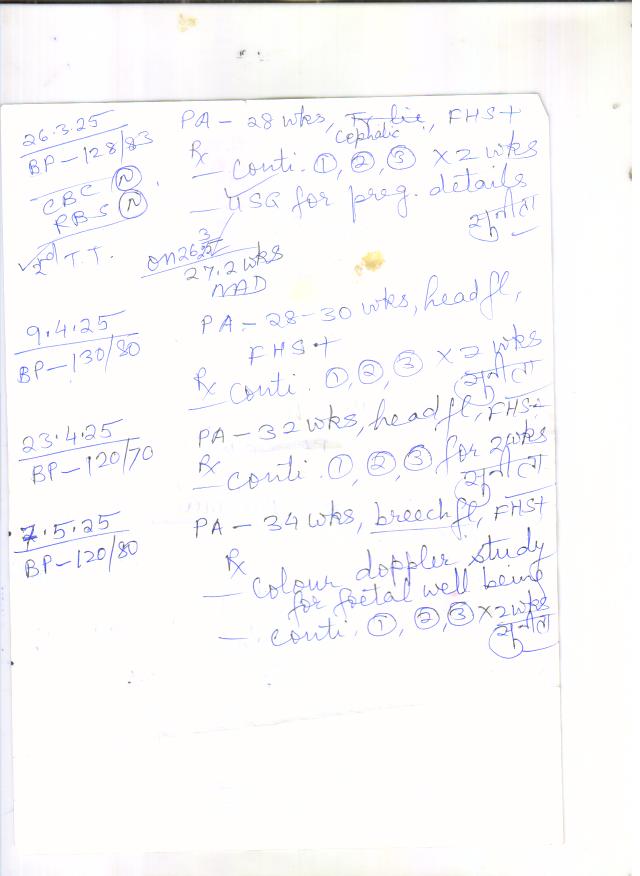 26.3.25 PA - 28 wks, Tr lie, FHS +
cephalic
BP - 128/83 Rx
- conti. ①, ②, ③ x 2 wks
CBC Ⓝ - USG for preg. details
RBS Ⓝ सुनीता
✓ 2nd T.T. on 26 3 25
27.2 wks
NAD
9.4.25 PA - 28-30 wks, head fl,
BP - 130/80 FHS +
Rx conti. ①, ②, ③ x 2 wks
सुनीता
23.4.25 PA - 32 wks, head fl, FHS+
BP - 120/70 Rx
- conti. ①, ②, ③ for 2 wks
सुनीता
7.5.25 PA - 34 wks, breech fl, FHS+
BP - 120/80 Rx
- colour doppler study
for foetal well being
- conti. ①, ②, ③ x 2 wks
सुनीता